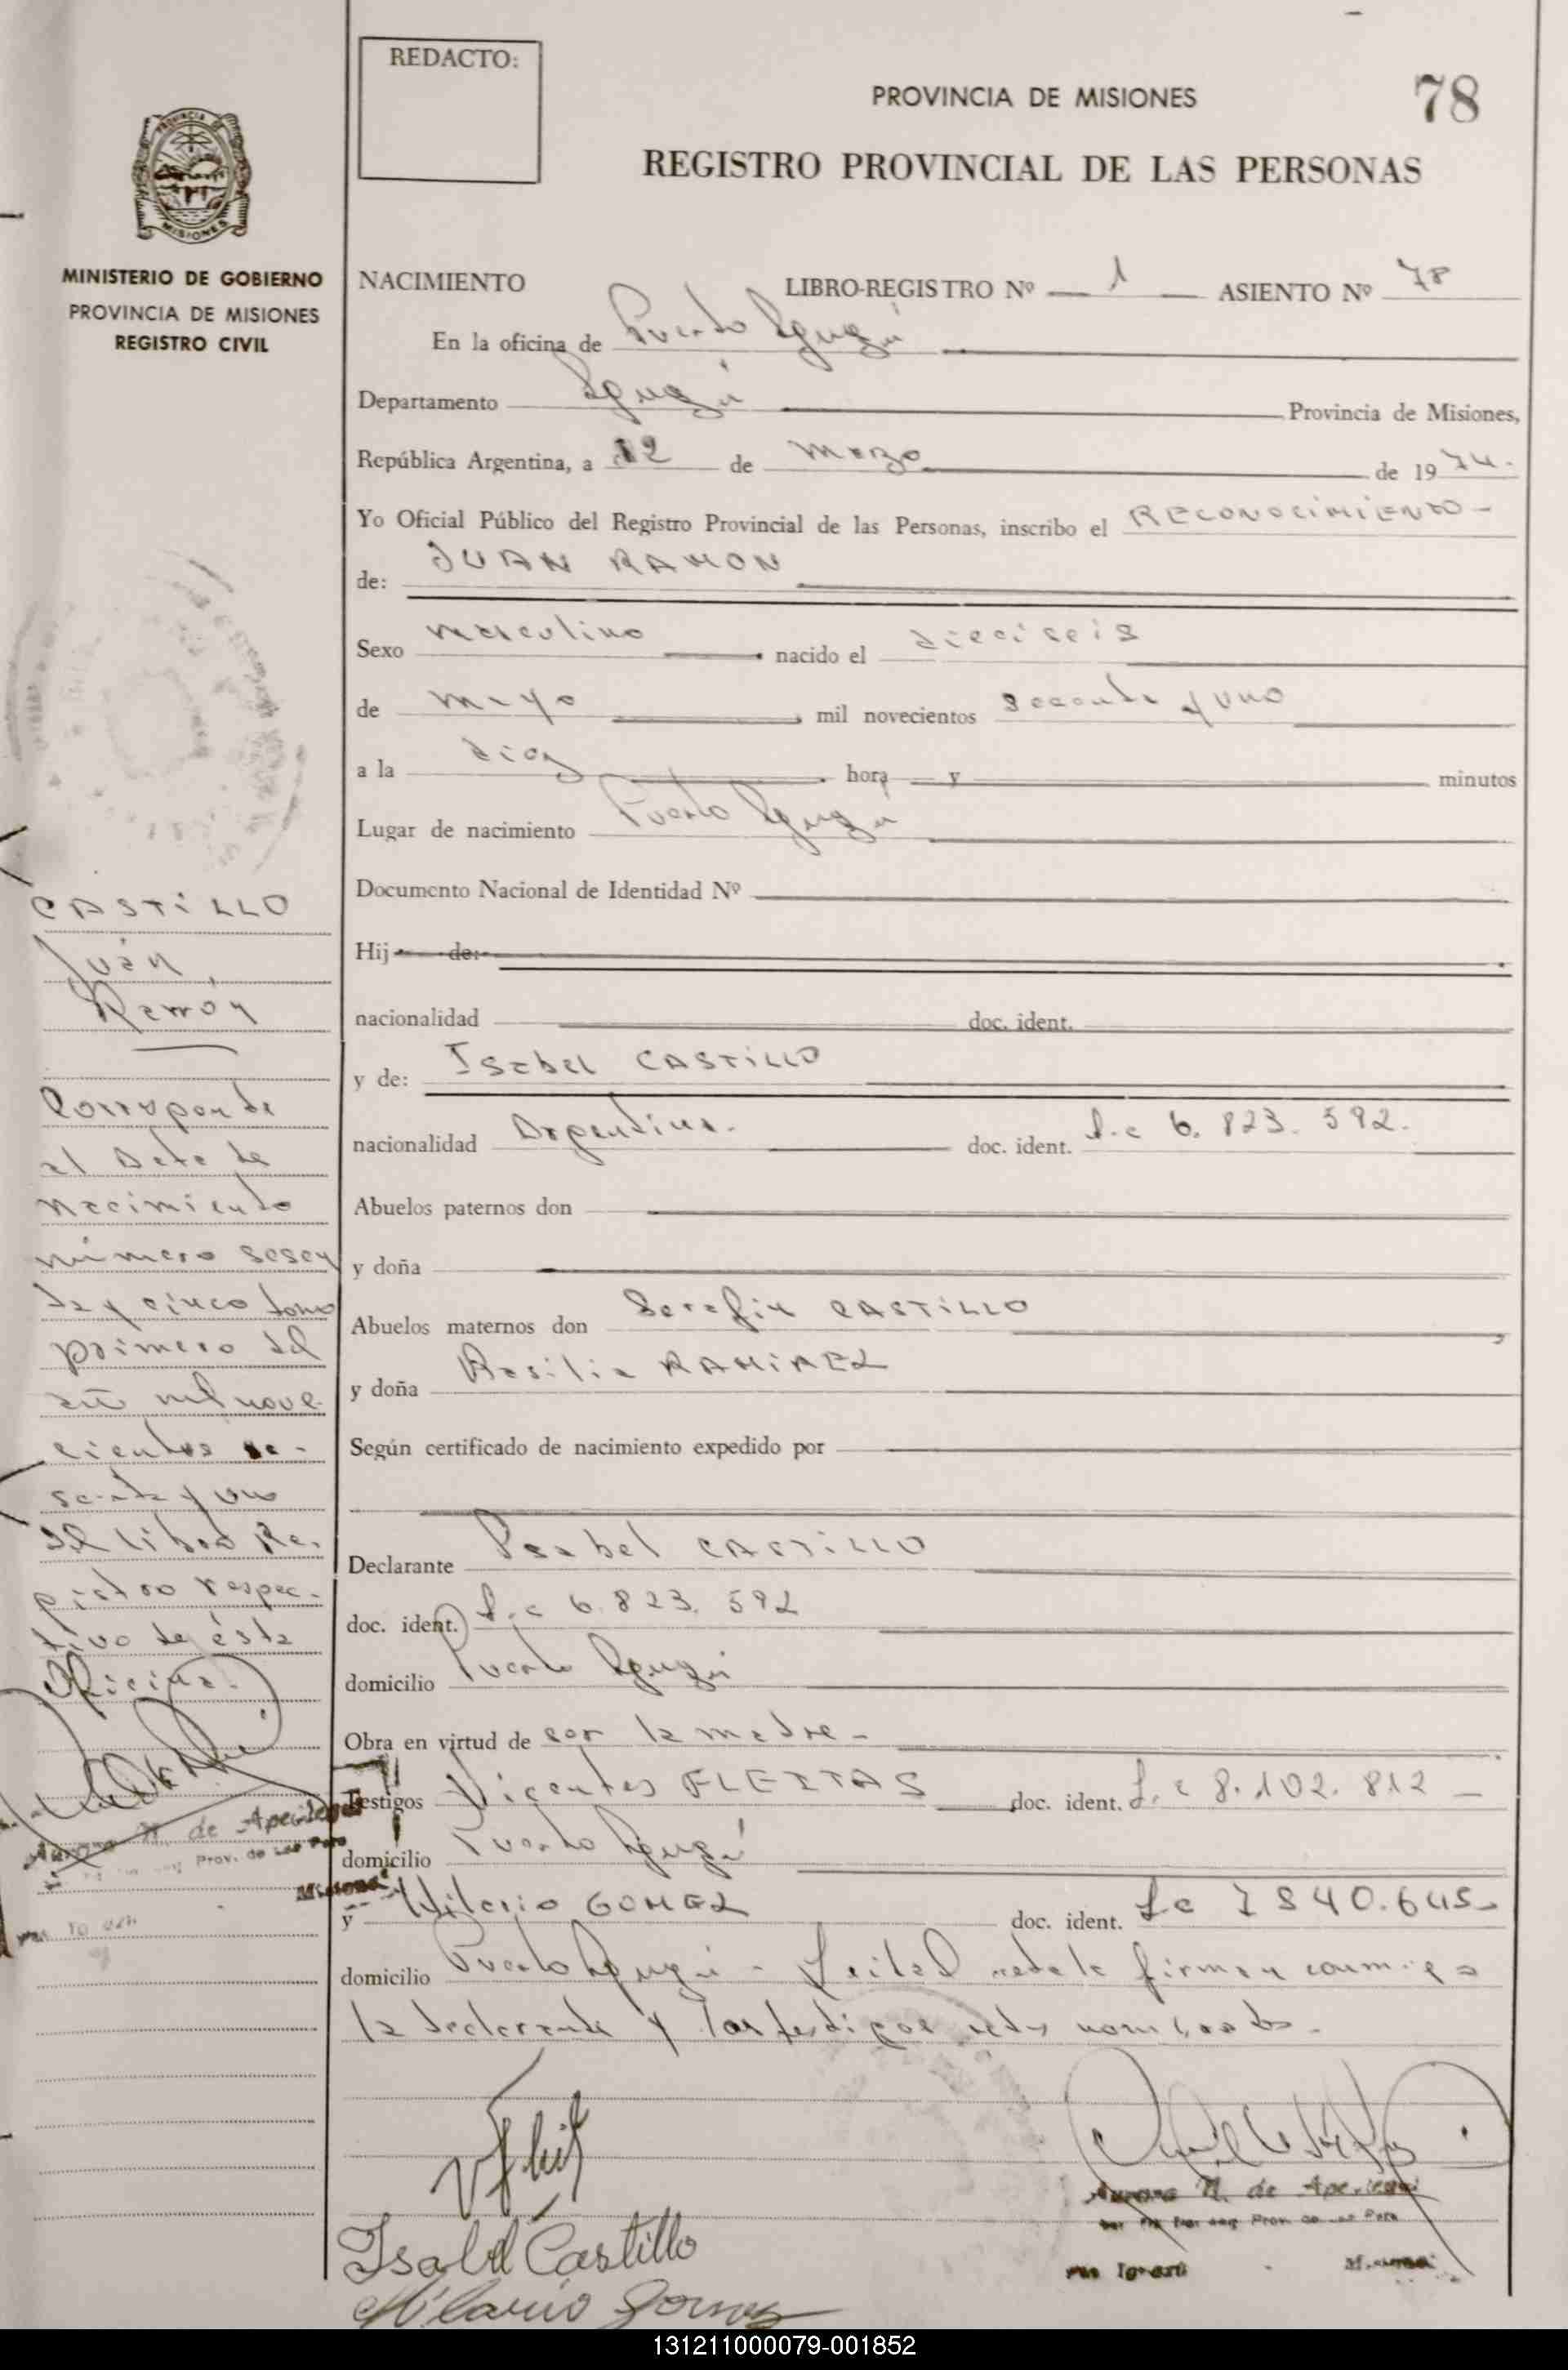 REDACTO:
PROVINCIA DE MISIONES
78
REGISTRO PROVINCIAL DE LAS PERSONAS
PROVINCIA DE
MISIONES
MINISTERIO DE GOBIERNO
PROVINCIA DE MISIONES
REGISTRO CIVIL
NACIMIENTO LIBRO-REGISTRO Nº 1 ASIENTO Nº 78
En la oficina de Puerto Iguazú
Departamento Iguazú Provincia de Misiones,
República Argentina, a 12 de marzo de 1974.
Yo Oficial Público del Registro Provincial de las Personas, inscribo el RECONOCIMIENTO -
de: JUAN RAMON
Sexo masculino nacido el dieciseis
de mayo mil novecientos sesenta y uno
a la diez hora y minutos
Lugar de nacimiento Puerto Iguazú
Documento Nacional de Identidad Nº
Hij de:
nacionalidad doc. ident.
y de: Isabel CASTILLO
nacionalidad Argentina. doc. ident. L.c 6.823.592.
Abuelos paternos don
y doña
Abuelos maternos don Serafin CASTILLO
y doña Basilia RAMIREZ
Según certificado de nacimiento expedido por
Declarante Isabel CASTILLO
doc. ident. L.c 6.823.592
domicilio Puerto Iguazú
Obra en virtud de ser la madre -
Testigos Vicentes FLEITAS doc. ident. L.e 8.102.812 -
domicilio Puerto Iguazú
y Hilario GOMEZ doc. ident. Le 7 840.645-
domicilio Puerto Iguazú - Leida el acta la firman conmigo
la declarante y los testigos antes nombrados.
CASTILLO
Juán
Ramón
Corresponde
al Acta de
nacimiento
número sesen
ta y cinco tomo
primero del
año mil nove
cientos se-
senta y uno
del libro Re-
gistro respec-
tivo de ésta
Oficina.
Aurora N. de Apecilegui
Prov. de Las Pers
Misiones
Aurora N. de Apecilegui
Prov. de Las Pers
Misiones
Isabel Castillo
Hilario Gomez
131211000079-001852